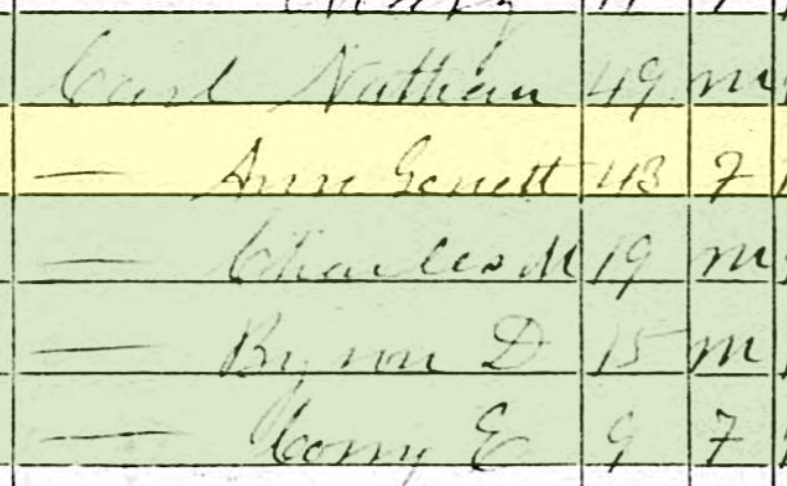 Carl Nathan 49 m
— Ann Genett 43 F
— Charles M 19 m
— Byron D 15 m
— E 9 F